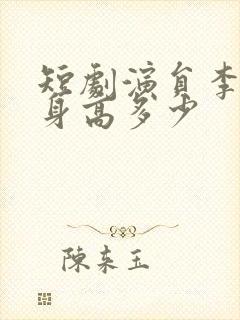 短劇演員李
身高多少
陳来玉